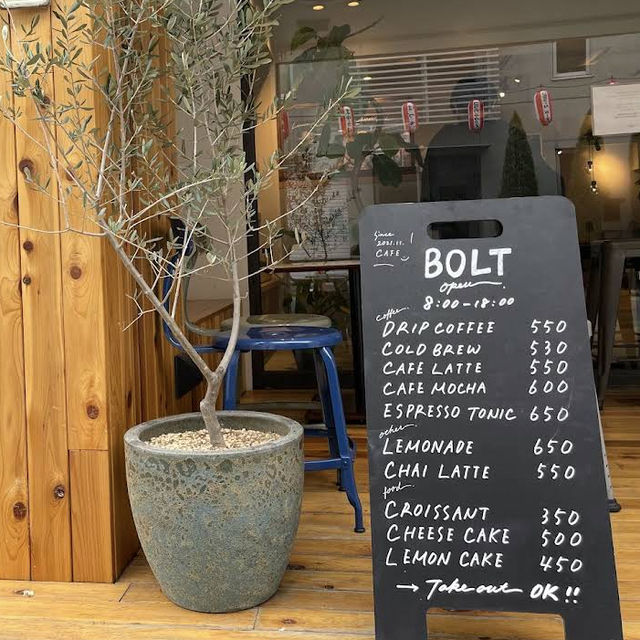 Since
2021.11.
CAFE
BOLT
open
8:00-18:00
coffee
DRIP COFFEE 550
COLD BREW 530
CAFE LATTE 550
CAFE MOCHA 600
ESPRESSO TONIC 650
other
LEMONADE 650
CHAI LATTE 550
food
CROISSANT 350
CHEESE CAKE 500
LEMON CAKE 450
→ Take out OK!!